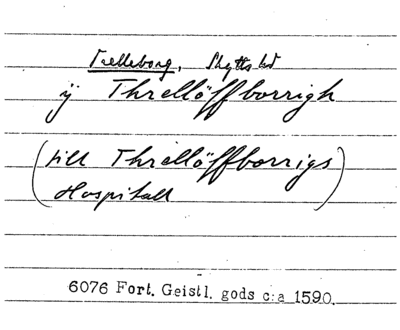 Trelleborg, Skytts hd
ij Threllöffborrigh
(till Threllöffborrigs
Hospitall)
6076 Fort. Geistl. gods c:a 1590.